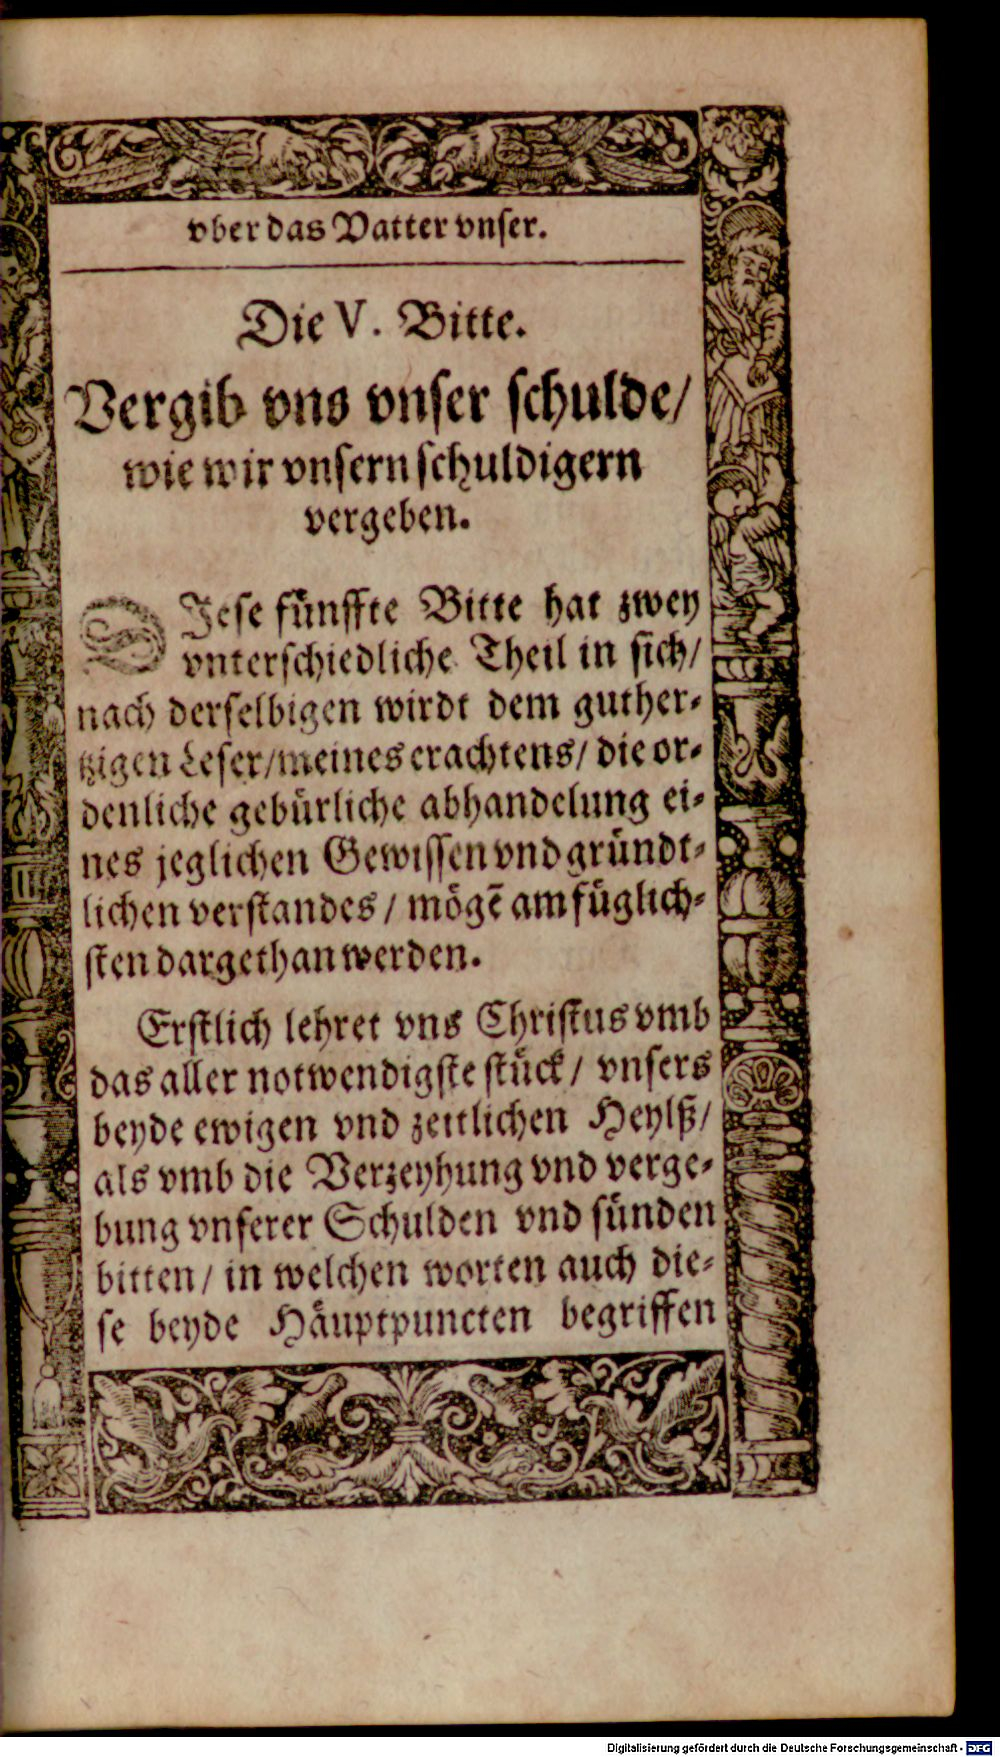 vber das Vatter vnser.
Die V. Bitte.
Vergib vns vnser schulde/
wie wir vnsern schuldigern
vergeben.
DJese fünffte Bitte hat zwey
vnterschiedliche Theil in sich/
nach derselbigen wirdt dem guther⸗
tzigen Leser/meines erachtens/ die or⸗
denliche gebürliche abhandelung ei⸗
nes jeglichen Gewissen vnd gründt⸗
lichen verstandes / mögē am füglich⸗
sten dargethan werden.
Erstlich lehret vns Christus vmb
das aller notwendigste stück / vnsers
beyde ewigen vnd zeitlichen Heylß/
als vmb die Verzeyhung vnd verge⸗
bung vnserer Schulden vnd sünden
bitten / in welchen worten auch die⸗
se beyde Häuptpuncten begriffen
Digitalisierung gefördert durch die Deutsche Forschungsgemeinschaft - DFG